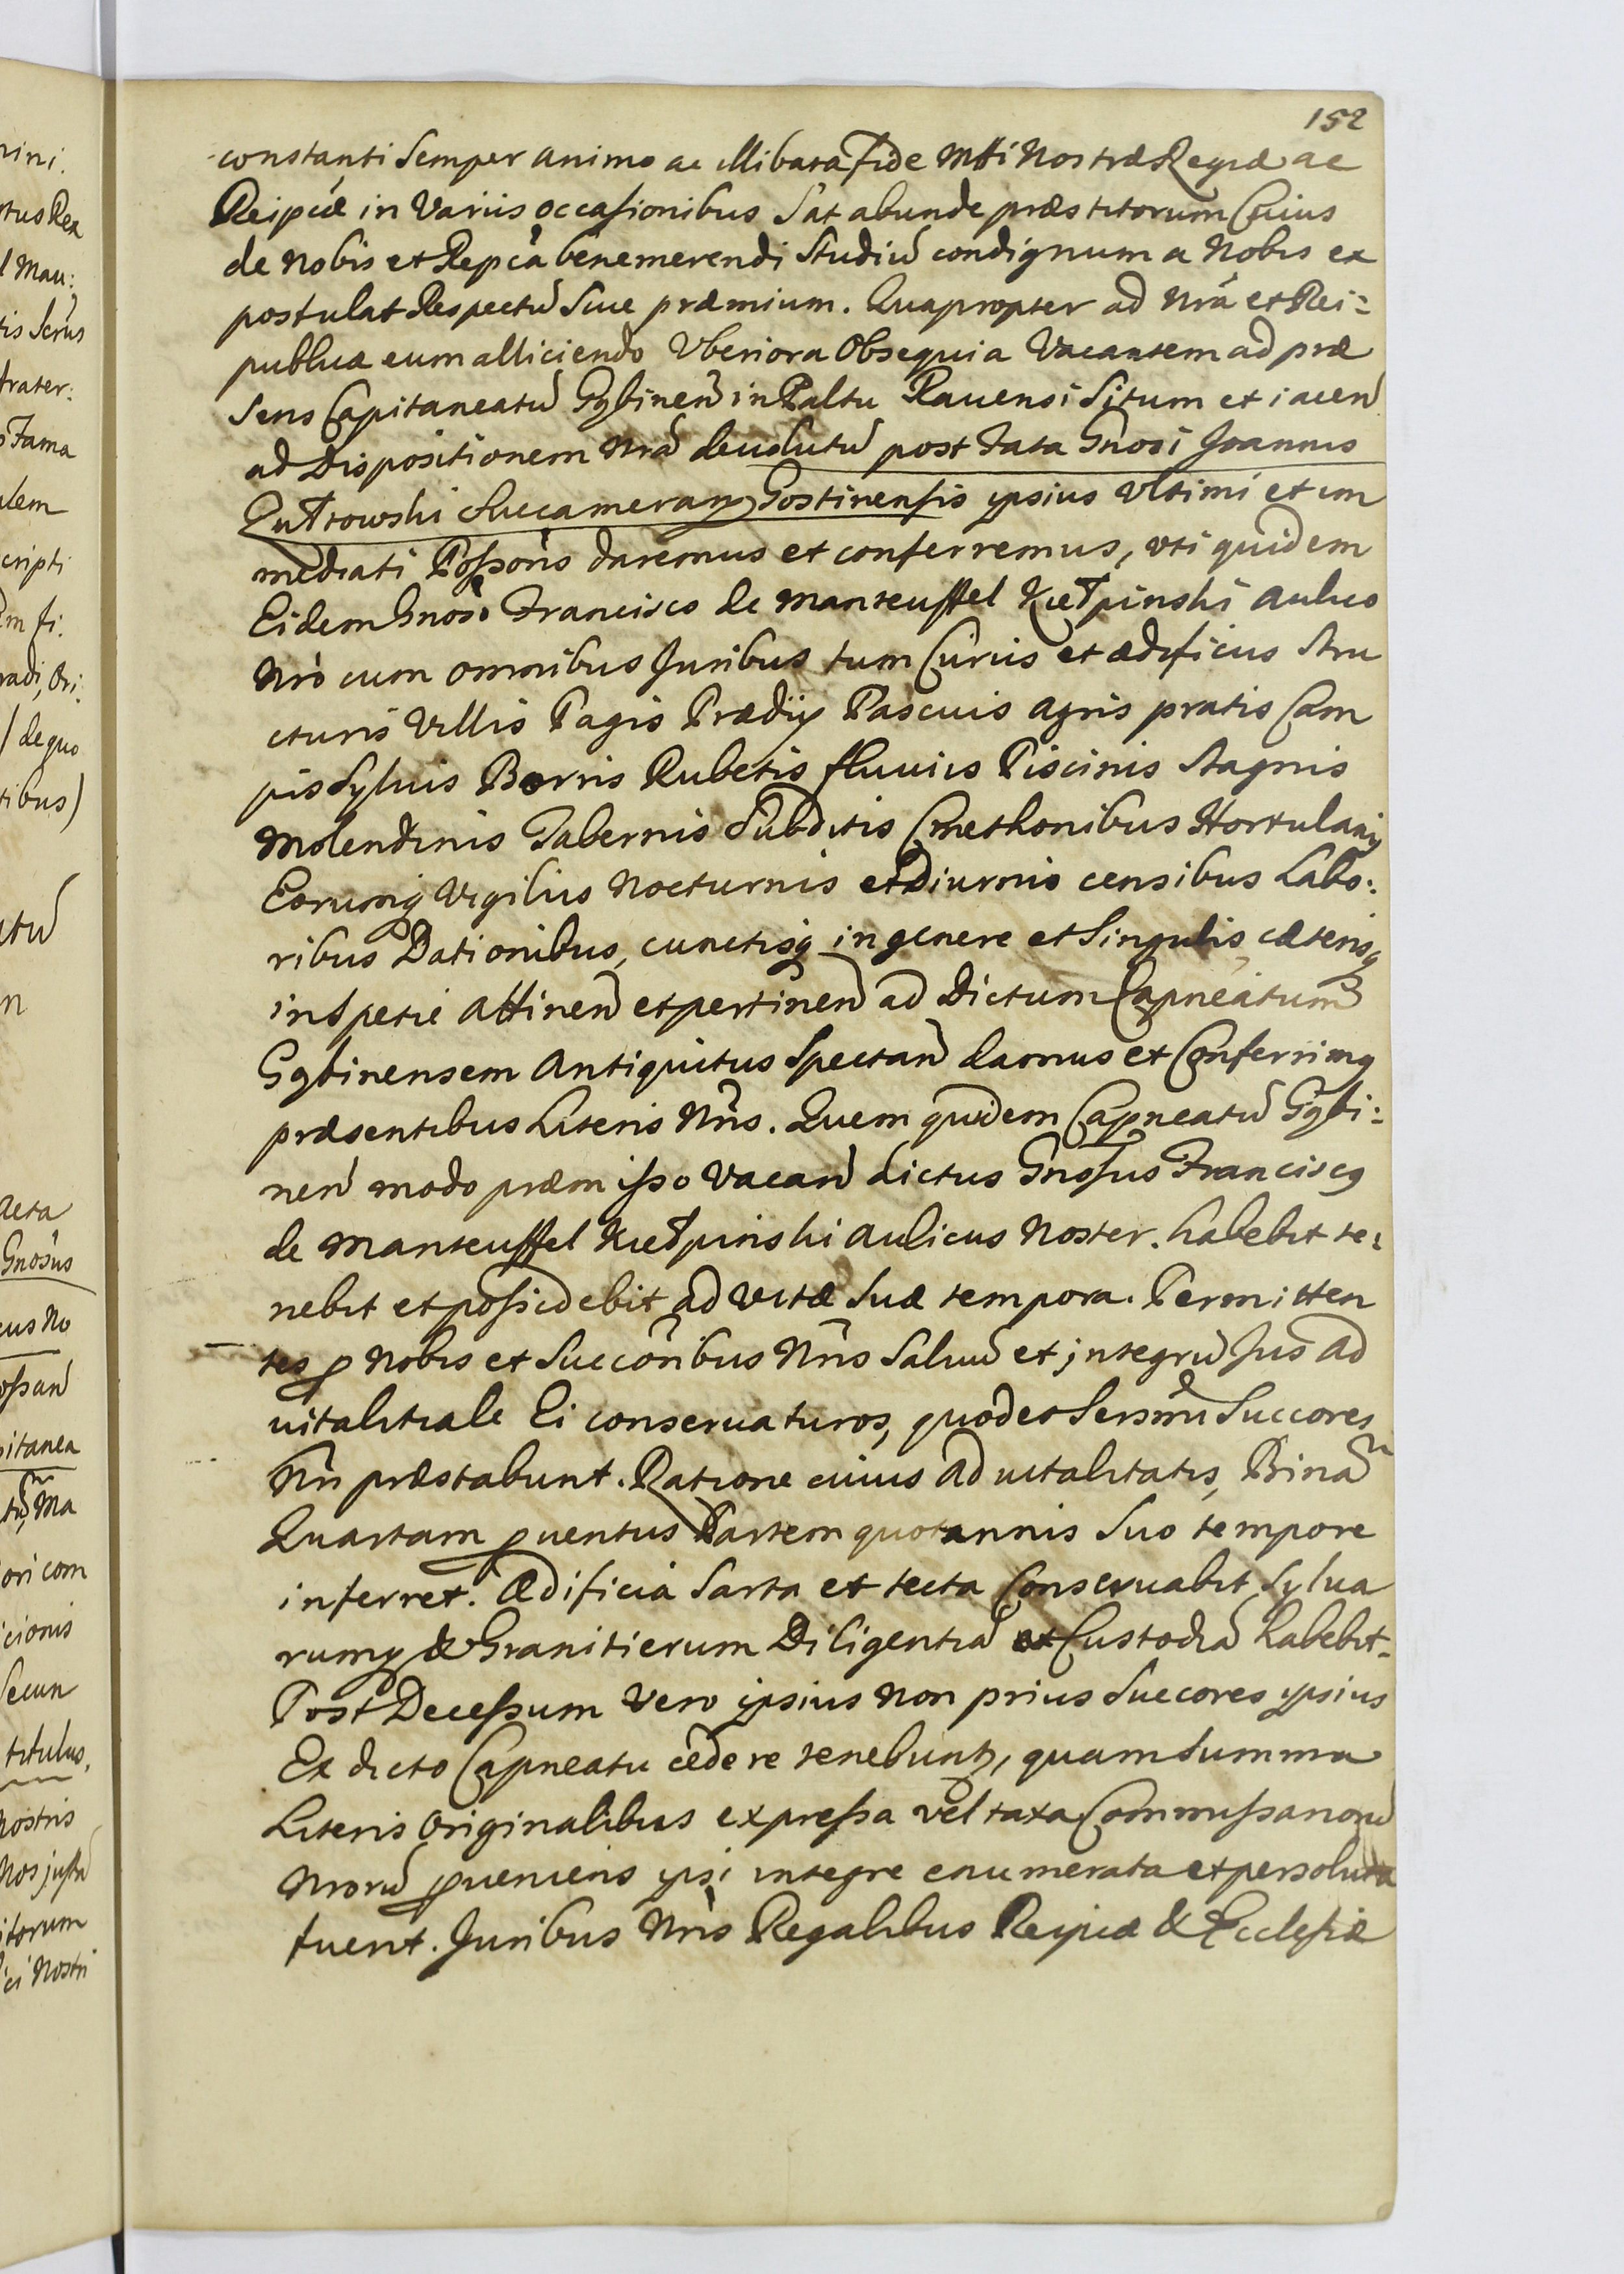 152
constanti Semper animo ac illibata fide Mtti Nostræ Regiæ ac
Reipcæ in Variis occasionibus Sat abunde præstitorum Cuius
de Nobis et Repca benemerendi Studiũ condignum a Nobis ex
postulat Respectũ Siue præmium. Quapropter ad Nrã et Rei:
publicæ eum alliciendo Vberiora Obsequia Vacantem ad præ
Sens Capitaneatũ Gąbinen̄ in Paltu Rauensi Situm et iacen̄
ad Dispositionem Nrã deuolutũ post Fata Gnosi Joannis
Lutrowski Succamerarÿ Gostinensis ipsius Vltimi et im
mediati Possoris daremus et conferremus, vti quidem
Eidem Gnoso Francisco de Manteuffel Kiełpinski Aulico
Nrò cum omnibus Juribus tum Curiis et ædificiis Stru
cturis Villis Pagis Prædijs Pascuis agris pratis Cam
pis Syluis Borris Rubetis fluuiis Piscinis Stagnis
Molendinis Tabernis Subditis Cmethonibus Hortulanis
Eorumq Vigiliis Nocturnis et Diurnis censibus Labo:
ribus Dationibus, cunctisq in genere et Singulis, cæterisq
in Spetie attinen̄ et pertinen̄ ad Dictum Capneatum
Gąbinensem Antiquitus Spectan̄ damus et Conferrimq
præsentibus Literis Nris. Quem quidem Capneatũ Gąbi:
nen̄ modo præmisso Vacan̄ dictus Gnosus Franciscq
de Manteuffel Kiełpinski Aulicus Noster. habebit te:
nebit et possidebit ad vitæ Suæ tempora. Permitten
tes p Nobis et Succoribus Nris Saluũ et integrũ Jus ad
uitalitiale Ei conseruaturos, quod et Sersmi Succores
Nri præstabunt. Ratione cuius Aduitalitatis,
Quartam puentus Partem quotannis Suo tempore
inferret. Ædificia Sarta et tecta Conseruabit Sylua
rumq & Granitierum Diligentiã et Custodiã habebit.
Post Decessum Vero ipsius non prius Succores ipsius
Ex dicto Capneatu cedere tenebunt, quam Summa
Literis Originalibus expressa vel taxa Commissariorũ
Nrorũ pueniens ipsi integre enumerata et persoluta
fuerit. Juribus Nris Regalibus Reipcæ & Ecclesiæ